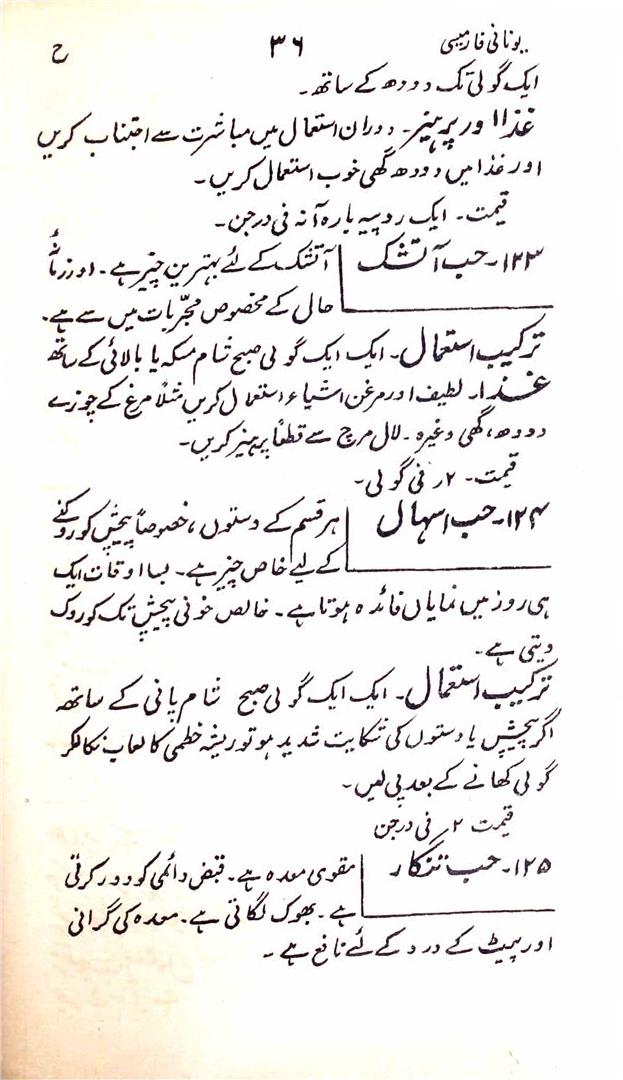 یونانی فارمیسی ۳۶ ح
ایک گولی تک دودھ کے ساتھ۔
غذا اور پرہیز۔ دوران استعمال میں مباشرت سے اجتناب کریں
اور غذا میں دودھ گھی خوب استعمال کریں۔
قیمت۔ ایک روپیہ بارہ آنہ فی درجن۔
۱۲۳۔ حب آتشک آتشک کے لئے بہترین چیز ہے۔ اور زمانۂ
حال کے مخصوص مجرّبات میں سے ہے۔
ترکیب استعمال۔ ایک ایک گولی صبح شام مسکہ یا بالائی کے ساتھ
غذا۔ لطیف اور مرغن اشیاء استعمال کریں مثلاً مرغ کے چوزے
دودھ، گھی وغیرہ۔ لال مرچ سے قطعاً پرہیز کریں۔
قیمت۔ ۲ر فی گولی۔
۱۲۴۔ حب اسہال ہر قسم کے دستوں، خصوصاً پیچش کو روکنے
کے لیے خاص چیز ہے۔ بسا اوقات ایک
ہی روز میں نمایاں فائدہ ہوتا ہے۔ خالص خونی پیچش تک کو روک
دیتی ہے۔
ترکیب استعمال۔ ایک ایک گولی صبح شام پانی کے ساتھ
اگر پیچش یا دستوں کی شکایت شدید ہو تو ریشہ خطمی کا لعاب نکالکر
گولی کھانے کے بعد پی لیں۔
قیمت ۲ر فی درجن
۱۲۵۔ حب تنکار مقوی معدہ ہے۔ قبض دائمی کو دور کرتی
ہے۔ بھوک لگاتی ہے۔ معدہ کی گرانی
اور پیٹ کے درد کے لئے نافع ہے۔